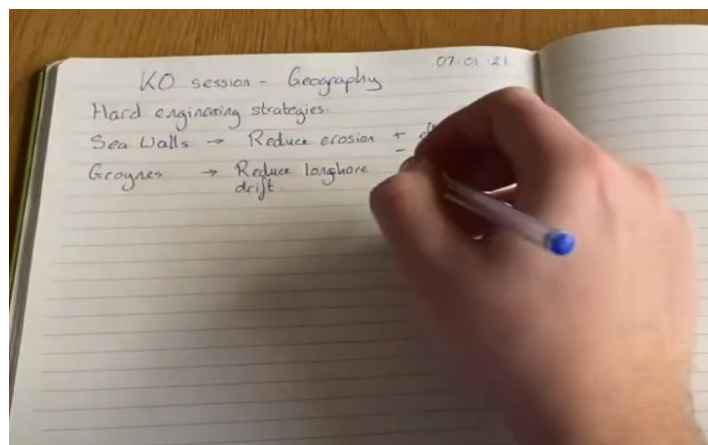 07 01 21
KO session - Geography
Hard engineering strategies.
Sea Walls → Reduce erosion +
-
Groynes → Reduce longhore
drift.